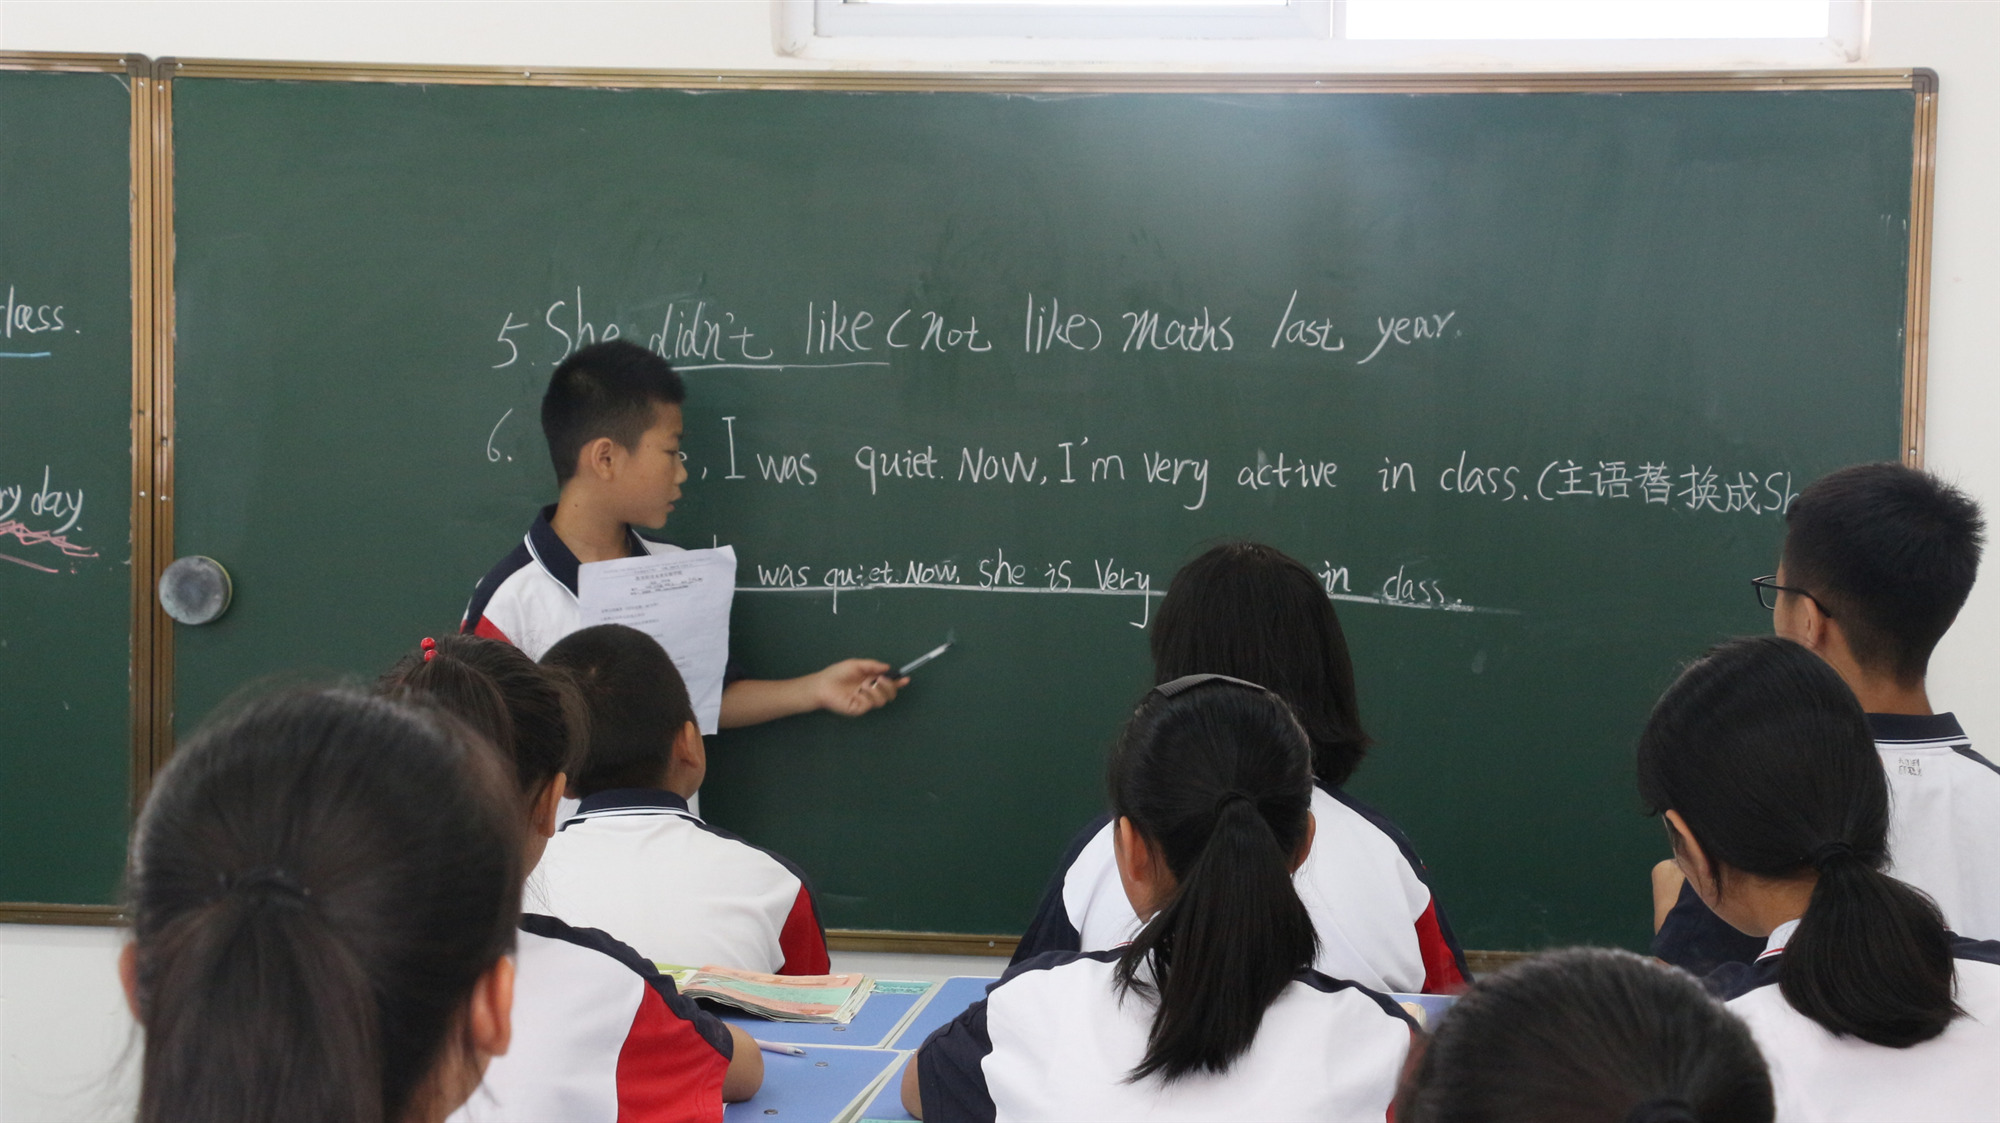 class.
day.
5. She didn't like (not like) Maths last year.
6. , I was quiet. Now, I'm very active in class. (主语替换成Sh
was quiet. Now, she is very in class.